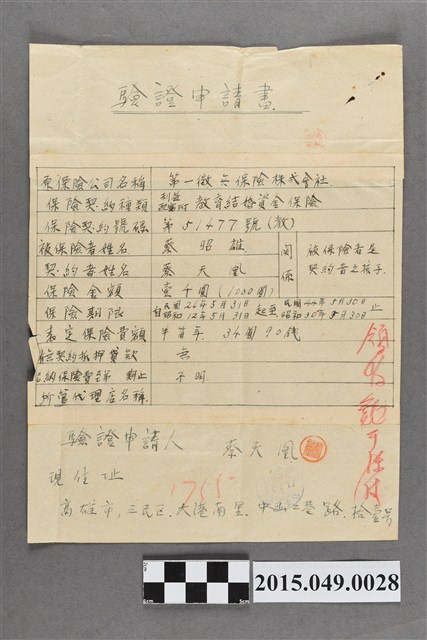 驗證申請書
原保險公司名稱 第一徵兵保險株式會社
保險契約種類 利益配當附 教育結婚資金保險
保險契約號碼 第51477號(教)
被保險者姓名 蔡昭雄 關係 被保險者是契約者之孩子
契約者姓名 蔡天凰
保險金額 壹千圓(1000圓)
保險期限 自民國26年5月31日 昭和12年5月31日 起至 民國44年5月30日 昭和30年5月30日 止
表定保險費額 半箇年 34圓90錢
抵押貸款 無
納保險費至第 期止 不明
所管代理店名稱
驗證申請人 蔡天凰
現住址 1755
高雄市,三民区,大港南里,中山三巷路,拾壹号
2015.049.0028